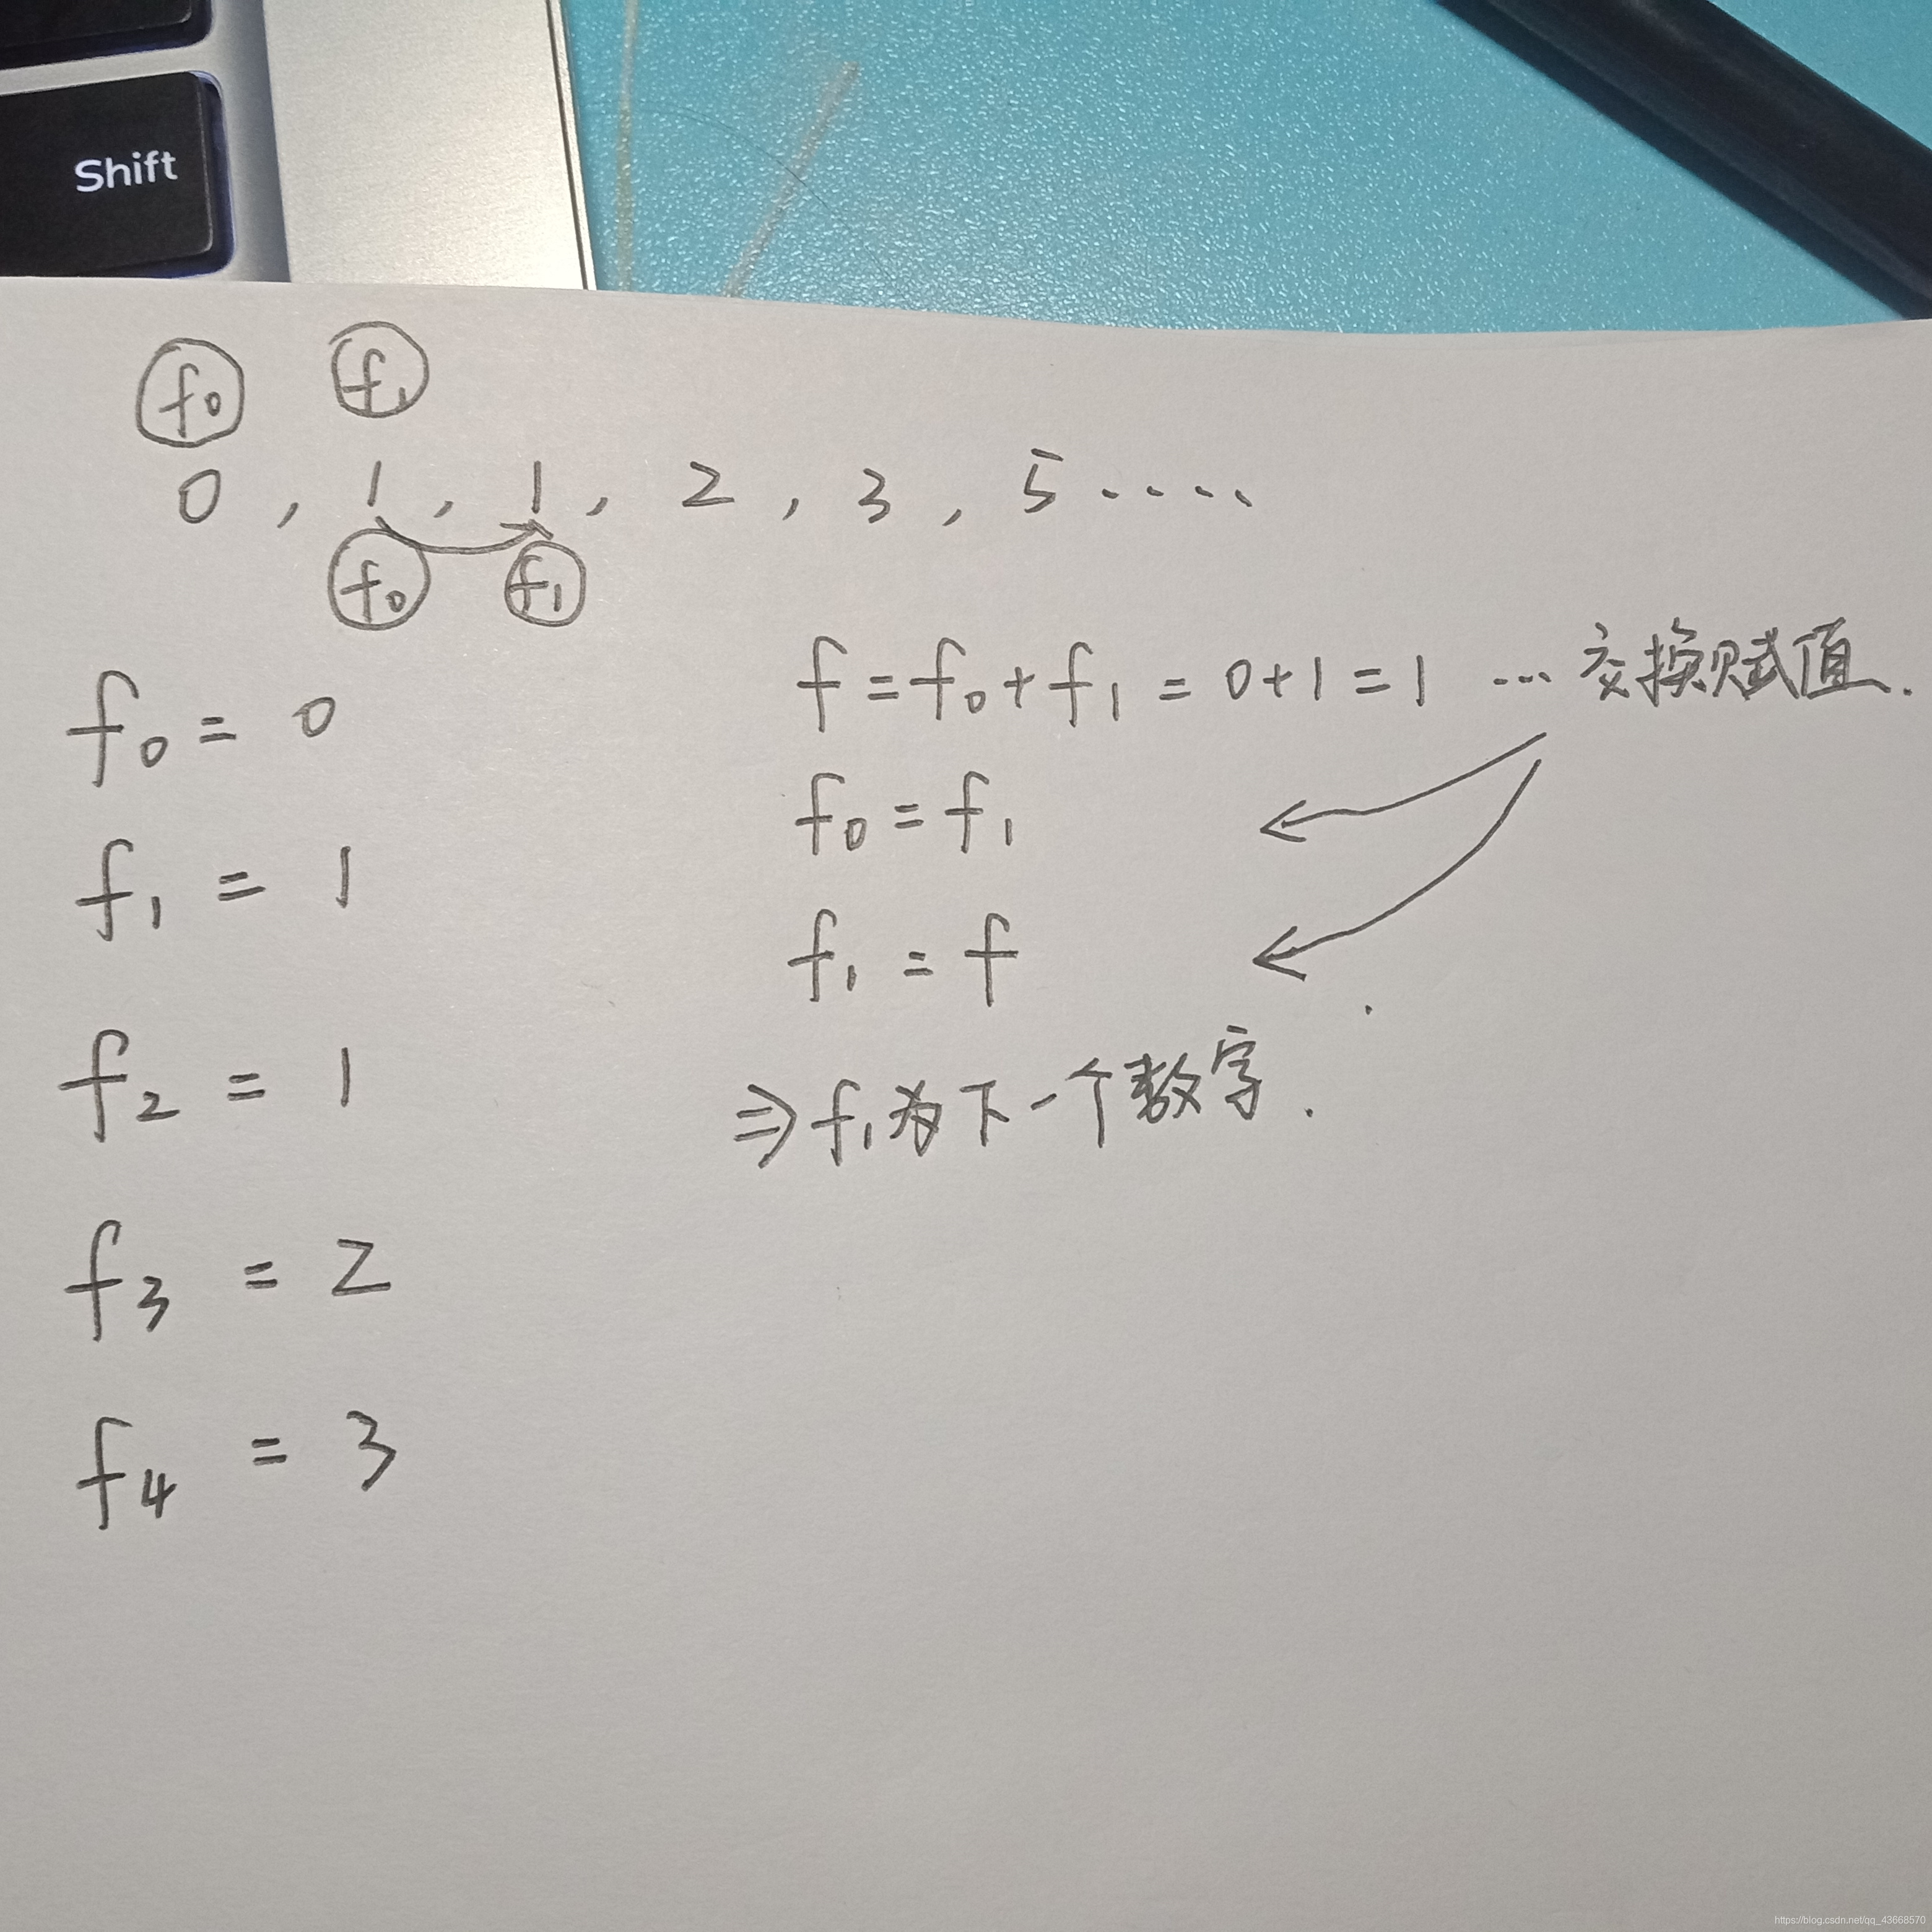 Shift
f₀ f₁
0 , 1 , 1 , 2 , 3 , 5 ·····
f₀ f₁
f₀ = 0
f₁ = 1
f₂ = 1
f₃ = 2
f₄ = 3
f = f₀ + f₁ = 0+1 = 1 ... 交换赋值.
f₀ = f₁
f₁ = f
⇒ f₁为下一个数字.
https://blog.csdn.net/qq_43668570